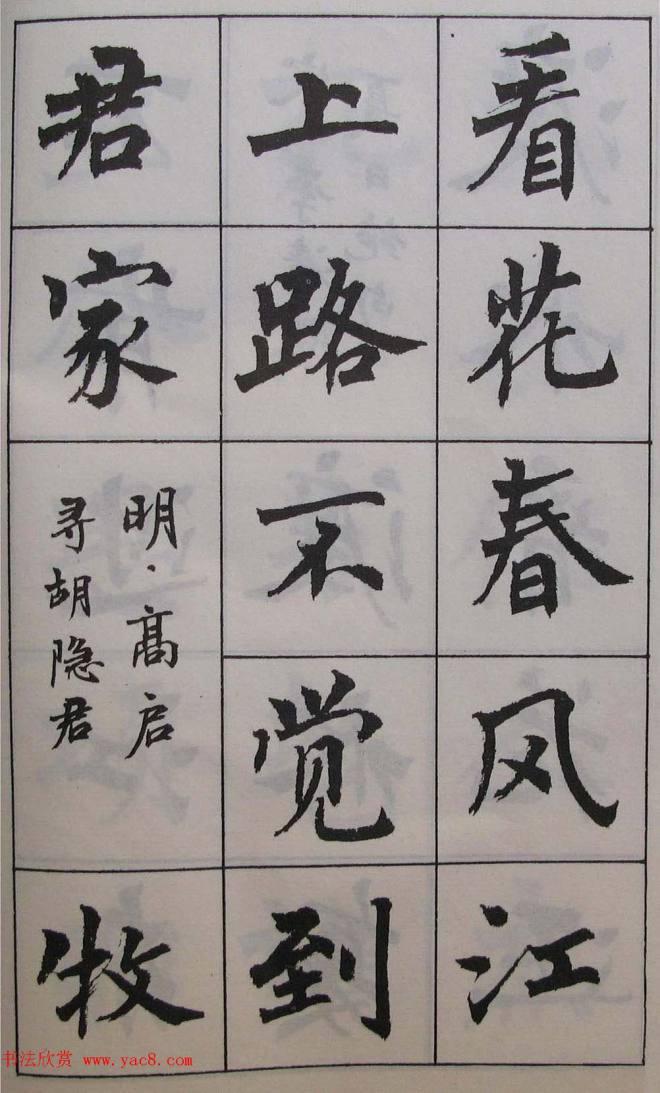 看花春风江
上路不觉到
君家
明·高启
寻胡隐君
牧
书法欣赏 www.yac8.com